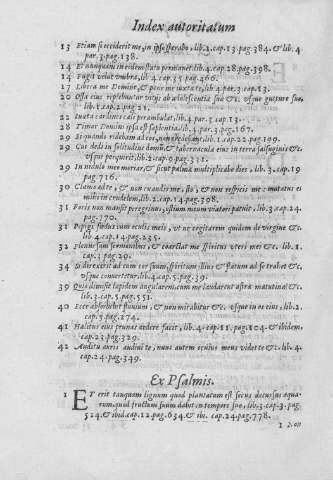 Index autoritatum
13 Etiam si occiderit me, in ipso sperabo, lib.2.cap.13.pag.384. & lib.4
par.3.pag.138.
14 Et nunquam in eodem statu permanet. lib.4.cap.28.pag.398.
14 Fugit velut umbra, lib.4.cap.35.pag.466.
17 Libera me Domine, & pone me iuxta te, lib.4.par.3.cap.13.
20 Ossa eius replebuntur vitijs adolescentiæ suæ &c. usque gutture suo,
lib.1.cap.2.pag.21.
22 Iuxta cardines cæli perambulat, lib.4.par.5.cap.13.
28 Timor Domini ipsa est sapientia, lib.4.par.3.pag.167.
29 Si quando ridebam ad eos, non credebant, lib.1.cap.22.pag.109.
29 Cui dedi in solitudine domum & tabernacula eius in terra salsuginis &c.
usque perquirit, lib.2.cap.9.pag.331.
29 In nidulo meo moriar, & sicut palma multiplicabo dies, lib.3.cap.19
pag.716.
30 Clamo ad te, & non exaudis me, sto, & non respicis me: mutatus es
mihi in crudelem, lib.2.cap.14.pag.398.
31 Foris non mansit peregrinus, ostium meum viatori patuit, lib.3.cap.24.
pag.770.
31 Pepigi fœdus cum oculis meis, ut ne cogitarem quidem de virgine &c.
lib.4.cap.14.pag.235.
32 Plenus sum sermonibus, & coarctat me spiritus uteri mei &c. lib.1.
cap.3.pag.29.
34 Si direxerit ad eum cor suum, spiritum illius & flatum ad se trahet &c.
usque convertetur, lib.4.cap.5.pag.39.
39 Quis dimisit lapidem angularem, cum me laudarent astra matutina &c.
lib.3.cap.5.pag.551.
40 Ecce absorbebit fluvium, & non mirabitur &c. usque in os eius, lib.2.
cap.5.pag.274.
41 Halitus eius prunas ardere facit, lib.4.cap.11.pag.204. & ibidem,
cap.23.pag.329.
42 Auditu auris audivi te, nunc autem oculus meus videt te &c. lib.4.
cap.24.pag.349.
Ex Psalmis.
1 ET erit tanquam lignum quod plantatum est secus decursus aqua-
rum, quod fructum suum dabit in tempore suo, lib.3.cap.3.pag.
524. & ibid.cap.12.pag.634. & ibi. cap.24.pag.778.